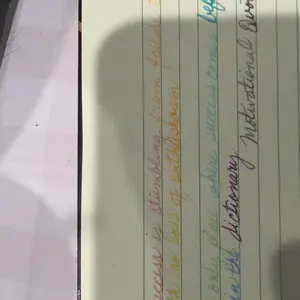 ccess is stumbling from failure
no loss of enthusiasm.
only place where success comes bef
in the dictionary.
Motivational Quo